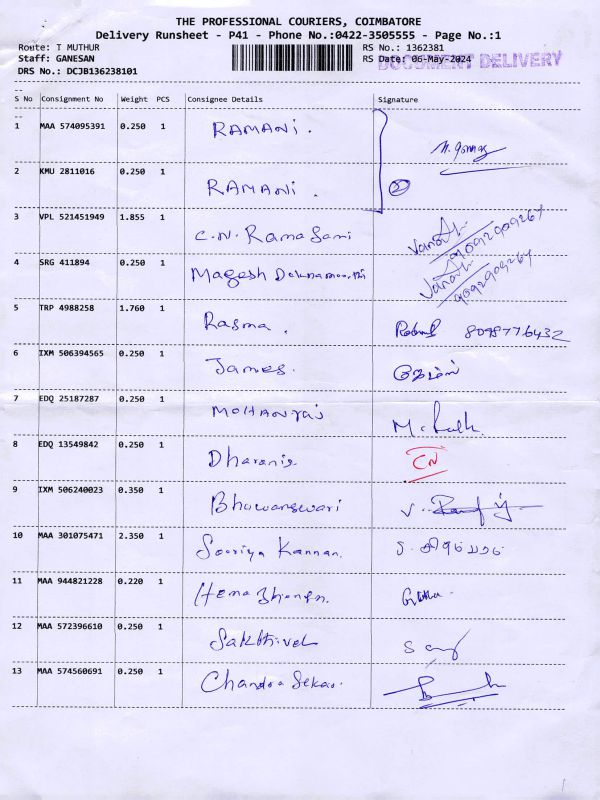 THE PROFESSIONAL COURIERS, COIMBATORE
Delivery Runsheet - P41 - Phone No.:0422-3505555 - Page No.:1
Route: T MUTHUR RS No.: 1362381
Staff: GANESAN RS Date: 06-May-2024 DOCUMENT DELIVERY
DRS No.: DCJB136238101
S No Consignment No Weight PCS Consignee Details Signature
1 MAA 574095391 0.250 1 RAMANI.
2 KMU 2811016 0.250 1 RAMANI. 2
3 VPL 521451949 1.855 1 C.N. Rama Sami 9092909267
4 SRG 411894 0.250 1 Magesh 9092909267
5 TRP 4988258 1.760 1 Rasma. 8098776432
6 IXM 506394565 0.250 1 James. ஜேம்ஸ்
7 EDQ 25187287 0.250 1 MOHANraj
8 EDQ 13549842 0.250 1 CN
9 IXM 506240023 0.350 1 Bhuwanswari
10 MAA 301075471 2.350 1 Sooriya Kannan.
11 MAA 944821228 0.220 1 Hema
12 MAA 572396610 0.250 1 Sakthivel
13 MAA 574560691 0.250 1 Chandra Sekar.